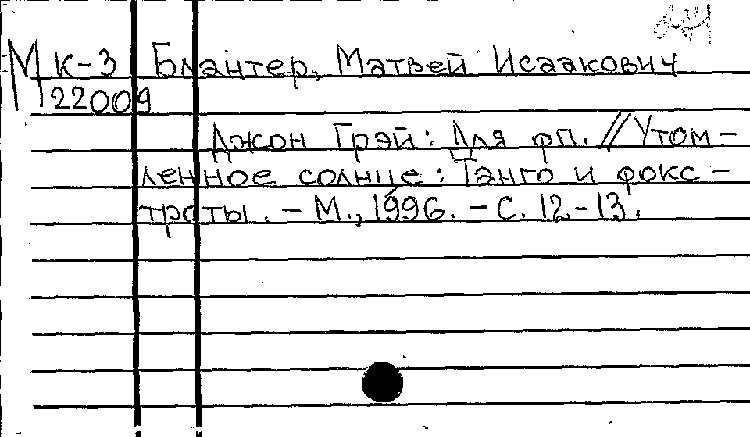 Мк-3 Блантер, Матвей Исаакович
22009
Джон Грэй: Для фп. // Утом-
ленное солнце: Танго и фокс-
троты. - М., 1996. - С. 12-13.